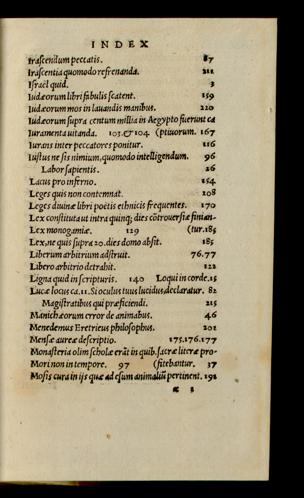 INDEX
Irascendum peccatis. 87
Irascentia quomodo refrenanda. 211
Israël quid. 3
Iudæorum libri fabulis scatent. 159
Iudæorum mos in lauandis manibus. 220
Iudæorum supra centum millia in Aegypto fuerunt ca
Iuramenta uitanda. 103.& 104 (ptiuorum. 167
Iurans inter peccatores ponitur. 116
Iustus ne sis nimium, quomodo intelligendum. 96
Labor sapientis. 26
Lacus pro inferno. 154
Leges quis non contemnat. 208
Leges diuinæ libri poëtis ethnicis frequentes. 170
Lex constituta ut intra quinq; dies cōtrouersiæ finian-
Lex monogamiæ. 129 (tur. 185
Lex, ne quis supra 20. dies domo absit. 185
Liberum arbitrium adstruit. 76.77
Libero arbitrio detrahit. 122
Ligna quid in scripturis. 140 Loqui in corde. 15
Lucæ locus ca. 11. Si oculus tuus lucidus, declaratur. 82
Magistratibus qui præficiendi. 215
Manichæorum error de animabus. 46
Menedemus Eretrieus philosophus. 201
Mensæ aureæ descriptio. 175.176.177
Monasteria olim scholæ erāt in quib. sacræ literæ pro-
Mori non in tempore. 97 (fitebantur. 37
Mosis cura in ijs quæ ad esum animaliū pertinent. 192
3